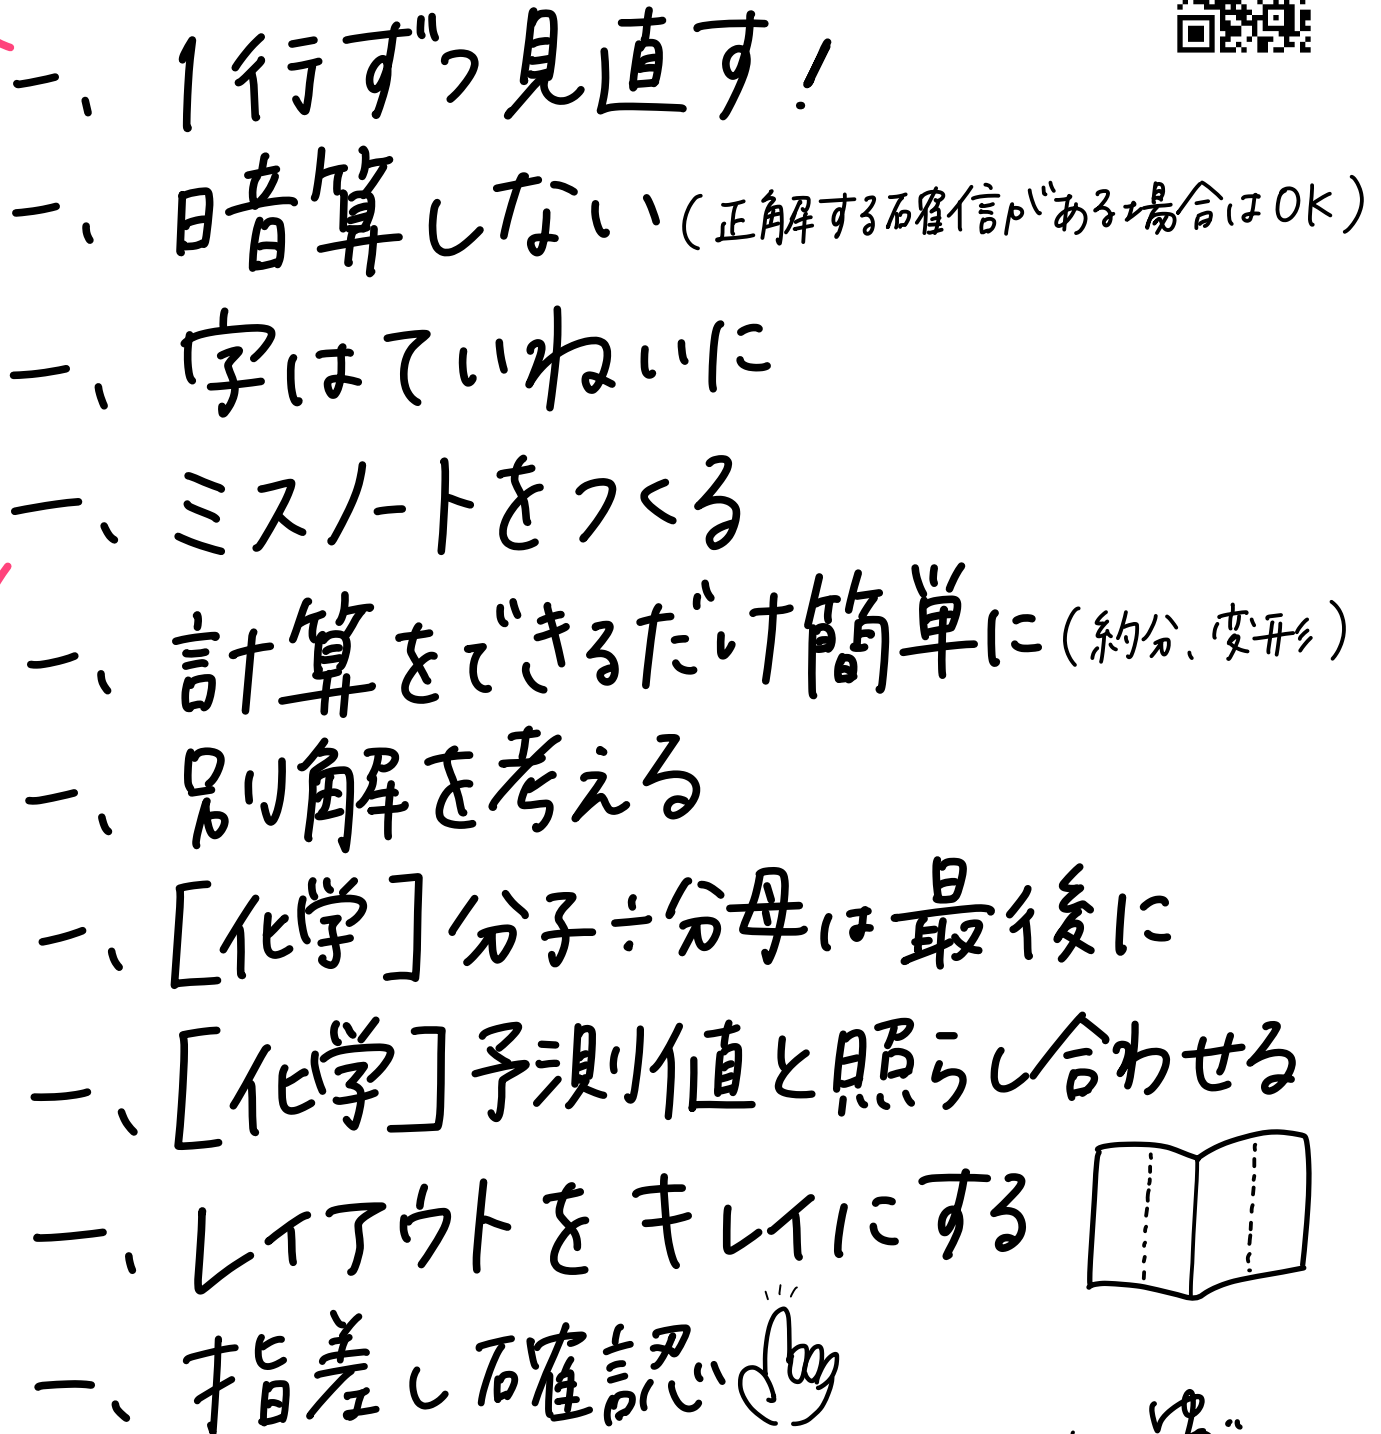 一、1行ずつ見直す!
一、暗算しない(正解する確信がある場合はOK)
一、字はていねいに
一、ミスノートをつくる
一、計算をできるだけ簡単に(約分、変形)
一、別解を考える
一、[化学]分子÷分母は最後に
一、[化学]予測値と照らし合わせる
一、レイアウトをキレイにする
一、指差し確認